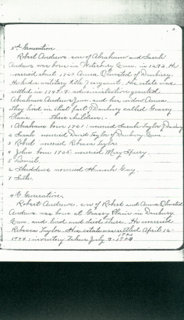 5th Generation
Robert Andrews son of Abraham and Sarah
Andrews was born in Waterbury Conn. in 1693. He
married about 1724 Anna Olmsted of Danbury.
He held a military title, Sergeant. His estate was
settled in 1774.9. administration granted
Abraham Andrews Jun. and her widow Anna.
They lived in that part Danbury called Grassy
Plain. Their children:
1 Abraham born 1721. married Sarah Taylor Danbury
2 Sarah married David Taylor of Danbury Conn.
3 Robert married Rebecca Taylor
4 John born married Mary Starr
5 Daniel
6 Thaddeus married Hannah Guy.
7 Seth.
6th Generation.
Robert Andrews, son of Robert and Anna Olmsted
Andrews was born at Grassy Plain in Danbury
Conn. and lived and died there. He married
Rebecca Taylor. His estate was settled April 12
inventory taken July 3.